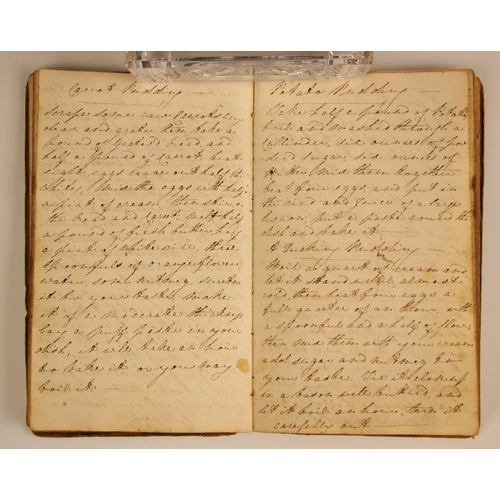 Carrot Pudding
Scrape some raw Carrots very
clean and grate them, take a
pound of grated bread, and
half a pound of carrot, beat
eight eggs leave out half the
whites, mix the eggs with half
a pint of cream then stir in
the bread and carrot, melt half
a pound of fresh butter half
a pint of white wine, three
spoonfuls of orange flower
water, some nutmeg, sweeten
it to your taste, make
it of a moderate thickness
lay a puff paste in your
dish, it will take an hour
to bake it or you may
boil it
Potato Pudding
Take half a pound of Potatoes
boil and mashed through a
cullender, six ounces of pow
dered sugar, six ounces of
Butter mix them together
beat four eggs, and put in
the rind and juice of a large
lemon, put a paste around the
dish and bake it
A Quaking Pudding
Boil a quart of cream and
let it stand until almost
cold, then beat four eggs a
full quarter of an hour, with
a spoonful and a half of flour
then mix them with your cream
add sugar and nutmeg to
your taste. Tie it close up
in a bason well buttered, and
let it boil an hour, turn it
carefully out